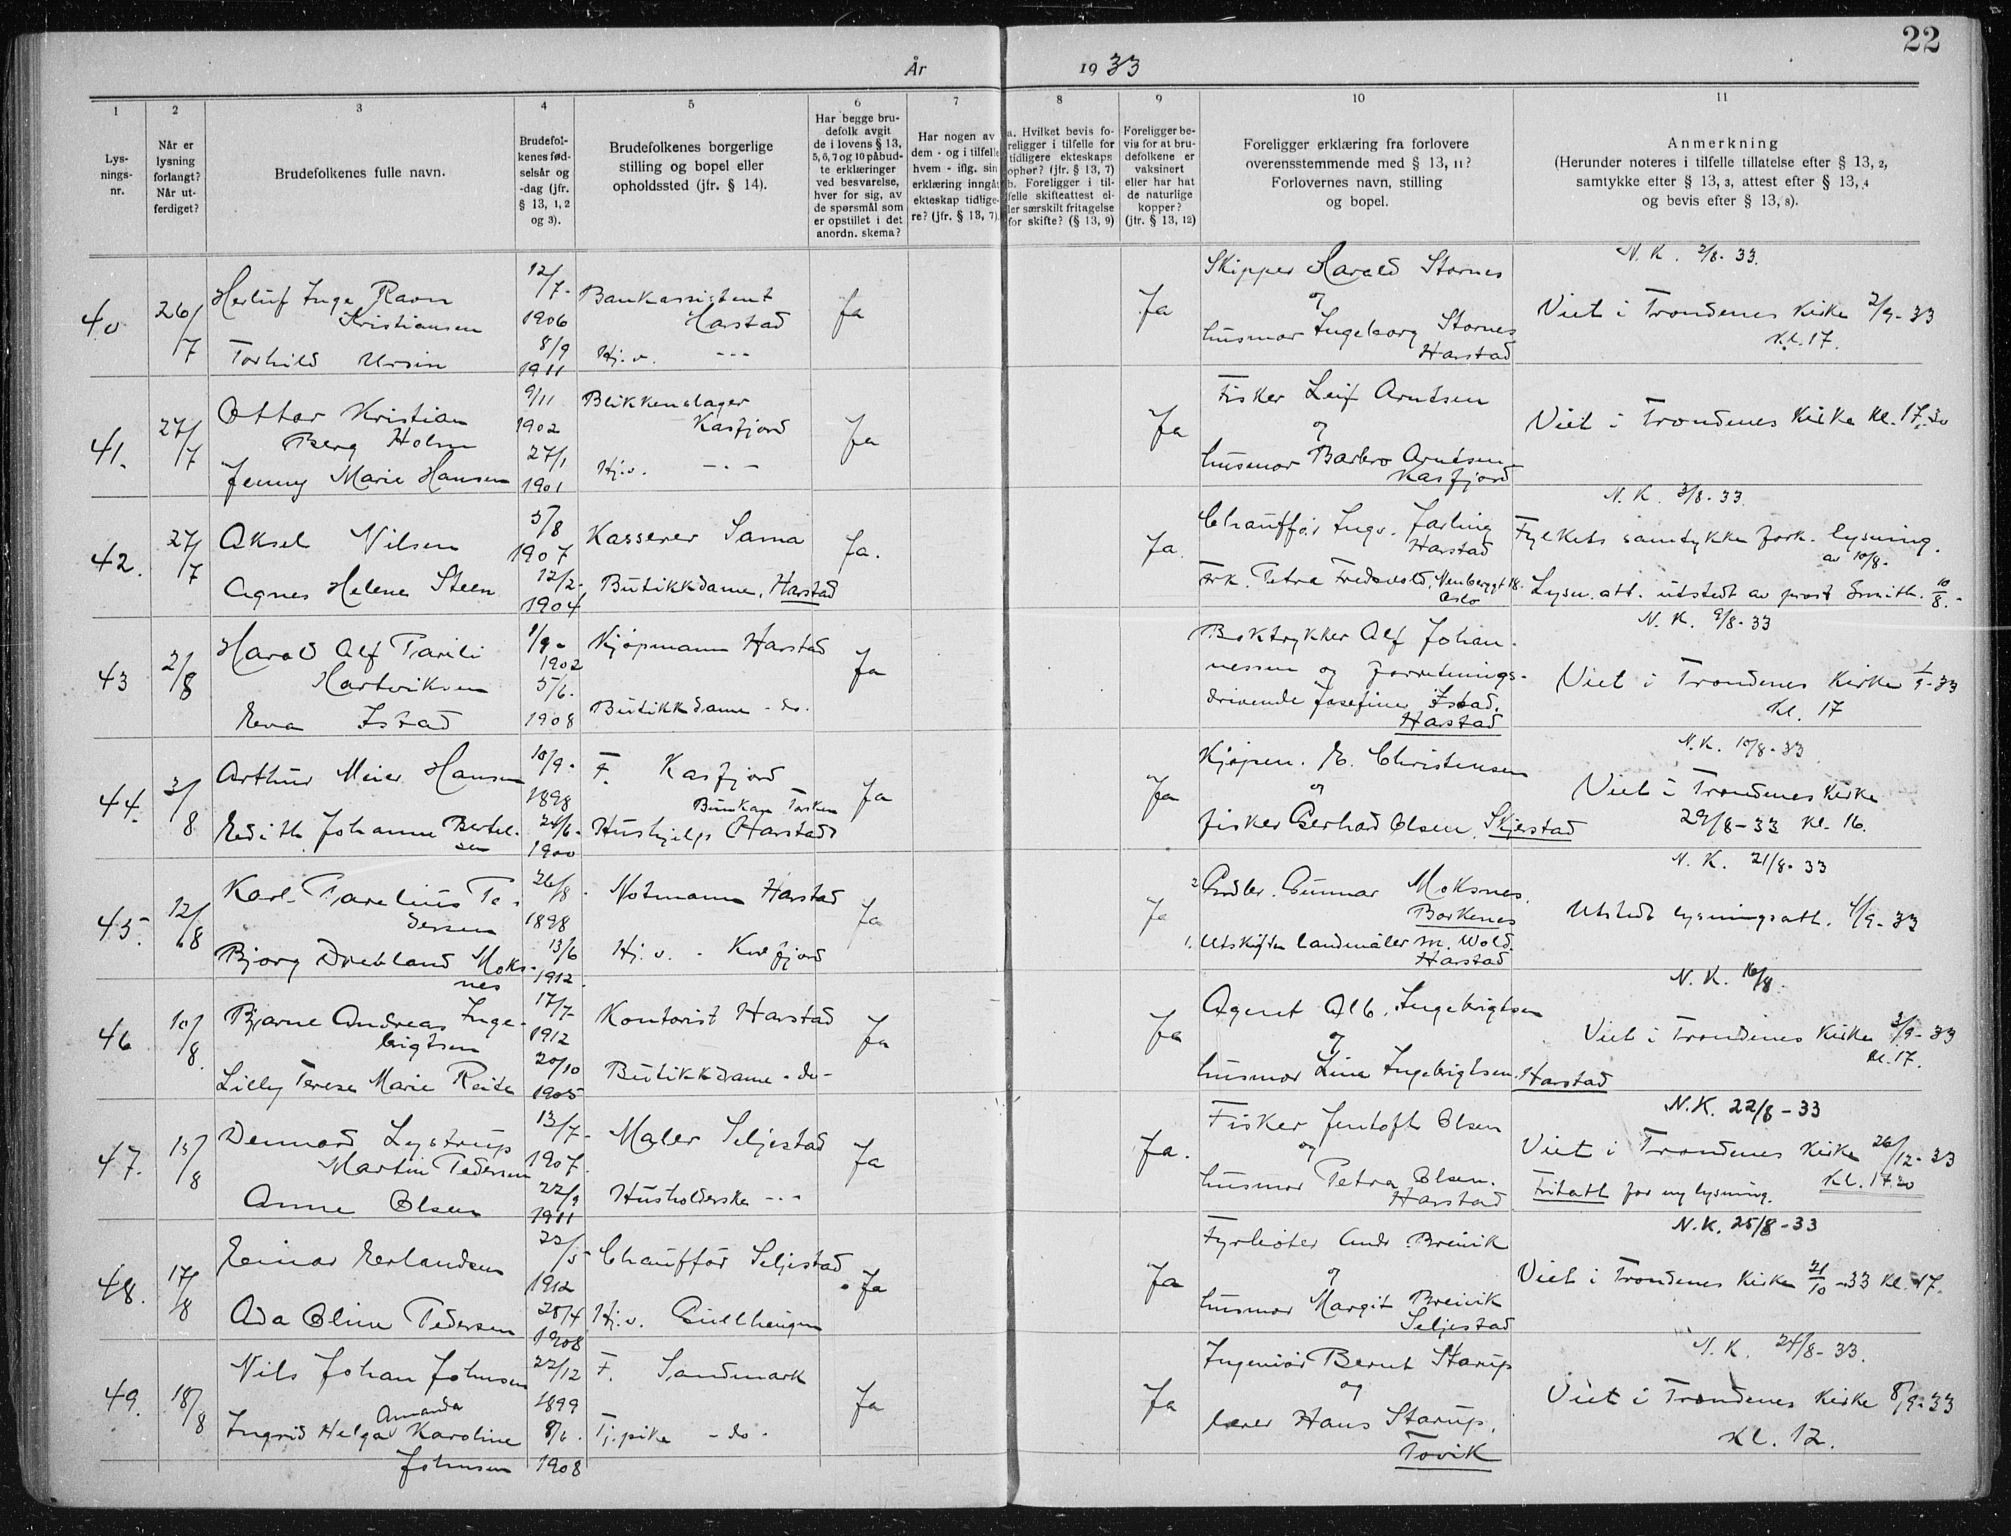 22
År 1933
1 2 3 4 5 6 7 8 9 10 11
Lys-
nings-
nr.
Når er
lysning
forlangt?
Når ut-
ferdiget?
Brudefolkenes fulle navn.
Brudefol-
kenes fød-
selsår og
-dag (jfr.
§ 13, 1, 2
og 3).
Brudefolkenes borgerlige
stilling og bopel eller
opholdssted (jfr. § 14).
Har begge bru-
defolk avgit
de i lovens § 13,
5, 6, 7 og 10 påbud-
te erklæringer
ved besvarelse,
hver for sig, av
de spørsmål som
er opstillet i det
anordn. skema?
Har nogen av
dem - og i tilfelle
hvem - iflg. sin
erklæring inngått
ekteskap tidlige-
re? (jfr. § 13, 7).
a. Hvilket bevis fo-
religger i tilfelle for
tidligere ekteskaps
ophør? (jfr. § 13, 7)
b. Foreligger i til-
felle skifteattest el-
ler særskilt fritagelse
for skifte? (§ 13, 9)
Foreligger be-
vis for at bru-
defolkene er
vaksinert
eller har hat
de naturlige
kopper?
(jfr. § 13, 12)
Foreligger erklæring fra forlovere
overensstemmende med § 13, 11?
Forlovernes navn, stilling
og bopel.
Anmerkning
(Herunder noteres i tilfelle tillatelse efter § 13, 2,
samtykke efter § 13, 3, attest efter § 13, 4
og bevis efter § 13, 8).
40 26/7 Herluf Inge Ravn
Kristiansen
12/7-
1906
Bankassistent
Harstad
Ja
Torhild Ursin
8/9
1911
Hj.v. -"-
Ja
Skipper Harald Stornes
og
husmor Ingeborg Stornes
Harstad
N. K. 2/8-33.
Viet i Trondenes Kirke 2/9-33
Kl. 17.
41. 27/7 Ottar Kristian
Berg Holm
9/11
1902
Blikkenslager
Kasfjord
Ja
Jenny Marie Hansen
27/1
1901
Hj.v. -"-
Ja
Fisker Leif Arntsen
og
husmor Barbro Arntsen
Kasfjord
Viet i Trondenes Kirke Kl. 17,30
42. 27/7 Aksel Nilsen
5/8
1907
Kasserer Sama
Ja.
Agnes Helene Steen
12/2-
1904
Butikkdame, Harstad
Ja.
Chauffør Ingv. Jarling
Harstad
Frk. Petra Fredsvold, Neuberggt 18.
Oslo
N. K. 3/8-33
Fylkets samtykke fork. lysning.
av 10/8-
Lysn. att. utstedt av prost Smith. 10/8.-
43 2/8 Harald Alf Parili
Hartviksen
1/9-
1902
Kjøpmann Harstad
Ja
Eva Istad
5/6.
1908
Butikkdame - do.
Boktrykker Alf Johan-
nessen og forretnings-
drivende Josefine Istad.
Harstad
N. K. 9/8-33
Viet i Trondenes Kirke 1/9-33
Kl. 17
44. 3/8 Arthur Meier Hansen
10/9-
1898
F. Kasfjord
Ja
Edith Johanne Bertel-
sen
24/6-
1900
Bunkan Torsken
Hushjelp (Harstad)
Ja
Kjøpm. E. Christensen
og
fisker Gerhard Olsen, Skjerstad
N.K. 10/8-33
Viet i Trondenes Kirke
29/8-33 Kl. 16.
45. 12/8 Karl Parelius Pe-
dersen
26/8.
1898
Notmann Harstad
Ja
Bjørg Drebland Moks-
nes
13/6
1912
Hj.v. - Kvefjord
Ja
2 Gunnar Moksnes
Borkenes
1. Utskiftn landmåler M. Wold.
Harstad
N. K. 21/8-33
Utstedt lysningsatt. 4/9-33
46 10/8. Bjarne Andreas Inge-
brigtsen
17/7-
1912
Kontorist Harstad
Ja
Lilly Terese Marie Reite
20/10
1905
Butikkdame - do-
Ja
Agent Alb. Ingebrigtsen
og
husmor Lina Ingebrigtsen. Harstad
N. K. 16/8.
Viet i Trondenes Kirke 3/9-33
Kl. 17.
47. 15/8 Dennard Lystrup
Martin Pedersen
13/7-
1907.
Maler Seljestad
Ja
Anne Olsen
22/9
1911
Husholderske -"-
Ja.
Fisker Jentoft Olsen
og
husmor Petra Olsen.
Harstad
N.K. 22/8-33
Viet i Trondenes Kirke 26/12-33
Kl. 17.30
Fritatt for ny lysning.
48. 17/8 Einar Erlandsen
23/5
1912
Chauffør Seljestad
Ja
Ada Oline Pedersen
25/4
1908
Hj.v. Gullhaugen
Ja
Fyrbøter Andr. Breivik
og
husmor Margit Breivik
Seljestad
N.K. 25/8-33
Viet i Trondenes Kirke 21/10-33 Kl. 17.
49. 18/8 Nils Johan Johnsen
22/12
1899
F. Sandmark
Ja
Amanda
Ingrid Helga Karoline
Johnsen
8/6.
1908
Tj.pike - do -
Ja
Ingeniør Bernt Starup
og
lærer Hans Starup,
Tovik
N. K. 24/8-33.
Viet i Trondenes Kirke 8/9-33
Kl. 12.